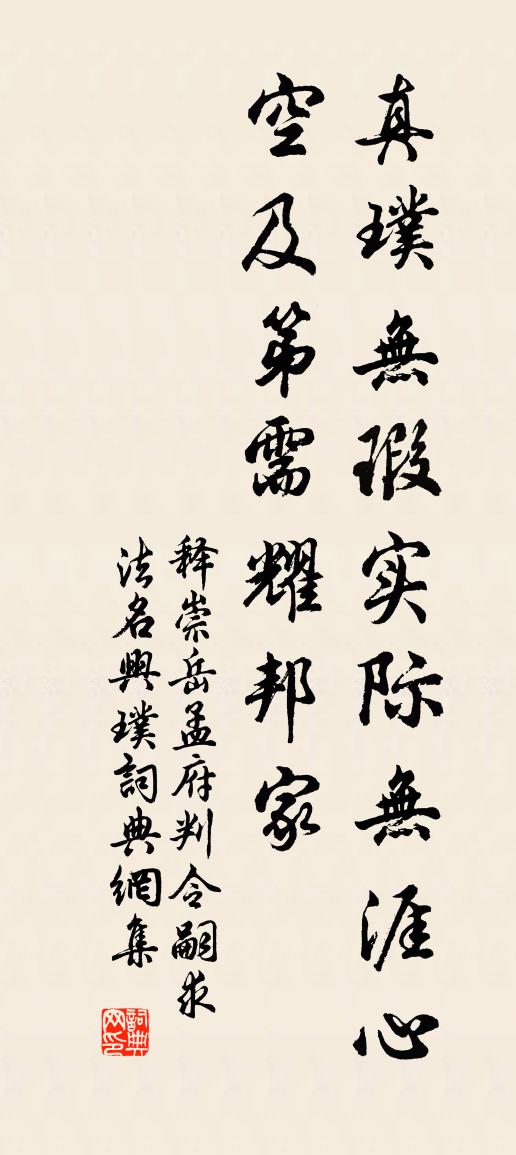 真璞無瑕实际無涯心
空及第需耀邦家
释崇岳孟府判令嗣求
法名興璞詞典網集
詞典网印